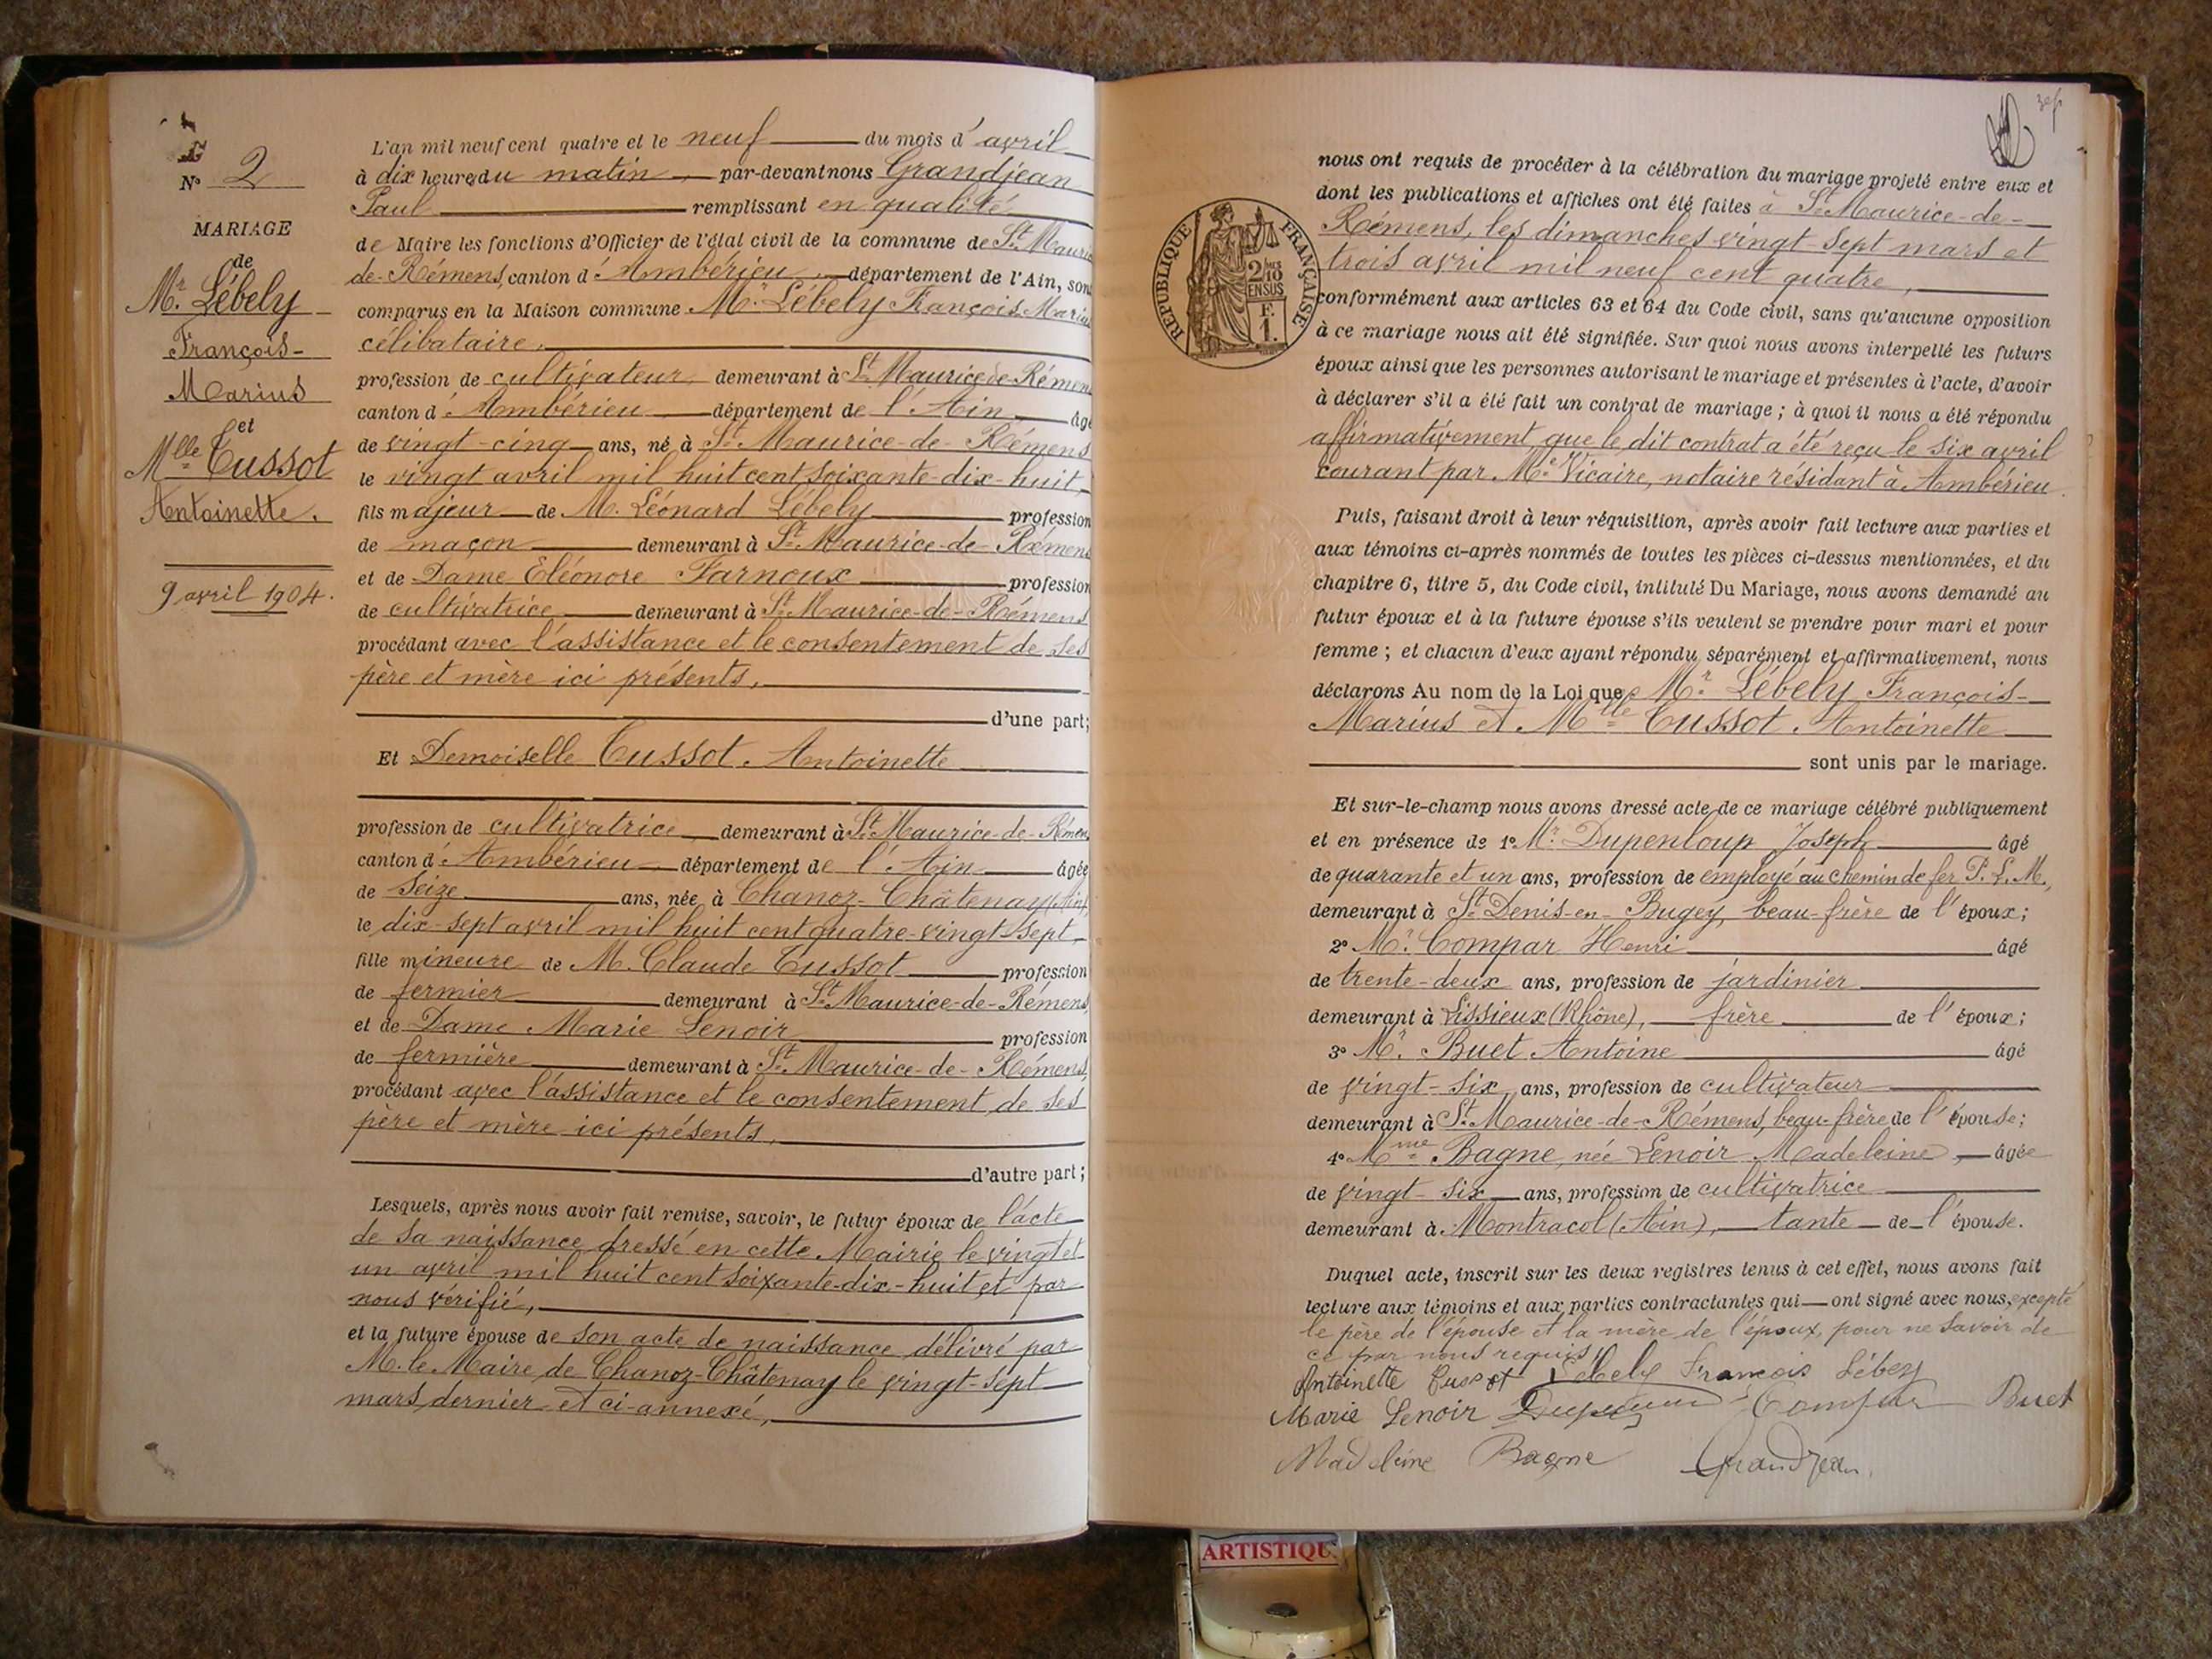 N° 2
MARIAGE
de
Mr. Lébely
François-
Marius
et
Mlle Tussot
Antoinette.
9 avril 1904.
L'an mil neuf cent quatre et le neuf du mois d'avril
à dix heures du matin par-devant nous Grandjean
Paul remplissant en qualité
de Maire les fonctions d'Officier de l'état civil de la commune de St. Maurice
de-Rémens, canton d'Ambérieu, département de l'Ain, sont
comparus en la Maison commune Mr. Lébely François Marius
célibataire,
profession de cultivateur, demeurant à St. Maurice de Rémens
canton d'Ambérieu département de l'Ain âgé
de vingt-cinq ans, né à St. Maurice-de-Rémens
le vingt avril mil huit cent soixante-dix-huit,
fils majeur de M. Léonard Lébely profession
de maçon demeurant à St. Maurice-de-Rémens
et de Dame Eléonore Farnoux profession
de cultivatrice demeurant à St. Maurice-de-Rémens
procédant avec l'assistance et le consentement de ses
père et mère ici présents,
d'une part;
Et Demoiselle Tussot Antoinette
profession de cultivatrice demeurant à St. Maurice-de-Rémens
canton d'Ambérieu département de l'Ain âgée
de seize ans, née à Chanoz-Châtenay (Ain)
le dix-sept avril mil huit cent quatre-vingt-sept,
fille mineure de M. Claude Tussot profession
de fermier demeurant à St. Maurice-de-Rémens
et de Dame Marie Lenoir profession
de fermière demeurant à St. Maurice-de-Rémens,
procédant avec l'assistance et le consentement de ses
père et mère ici présents,
d'autre part;
Lesquels, après nous avoir fait remise, savoir, le futur époux de l'acte
de sa naissance dressé en cette Mairie le vingt et
un avril mil huit cent soixante-dix-huit et par
nous vérifié,
et la future épouse de son acte de naissance délivré par
M. le Maire de Chanoz-Châtenay le vingt-sept
mars dernier et ci-annexé,
RÉPUBLIQUE FRANÇAISE
2/10
EN SUS
F.
1.
nous ont requis de procéder à la célébration du mariage projeté entre eux et
dont les publications et affiches ont été faites à St. Maurice-de-
Rémens, les dimanches vingt-sept mars et
trois avril mil neuf cent quatre,
conformément aux articles 63 et 64 du Code civil, sans qu'aucune opposition
à ce mariage nous ait été signifiée. Sur quoi nous avons interpellé les futurs
époux ainsi que les personnes autorisant le mariage et présentes à l'acte, d'avoir
à déclarer s'il a été fait un contrat de mariage; à quoi il nous a été répondu
affirmativement que le dit contrat a été reçu le six avril
courant par Me. Vicaire, notaire résidant à Ambérieu.
Puis, faisant droit à leur réquisition, après avoir fait lecture aux parties et
aux témoins ci-après nommés de toutes les pièces ci-dessus mentionnées, et du
chapitre 6, titre 5, du Code civil, intitulé Du Mariage, nous avons demandé au
futur époux et à la future épouse s'ils veulent se prendre pour mari et pour
femme; et chacun d'eux ayant répondu séparément et affirmativement, nous
déclarons Au nom de la Loi que Mr. Lébely François-
Marius et Mlle Tussot Antoinette
sont unis par le mariage.
Et sur-le-champ nous avons dressé acte de ce mariage célébré publiquement
et en présence de 1° Mr. Dupenloup Joseph âgé
de quarante et un ans, profession de employé au chemin de fer P.L.M.,
demeurant à St. Denis-en-Bugey, beau-frère de l'époux;
2° Mr. Compar Henri âgé
de trente-deux ans, profession de jardinier
demeurant à Lissieux (Rhône), frère de l'époux;
3° Mr. Buet Antoine âgé
de vingt-six ans, profession de cultivateur
demeurant à St. Maurice-de-Rémens, beau-frère de l'épouse;
4° Mme Bagne, née Lenoir Madeleine, âgée
de vingt-six ans, profession de cultivatrice
demeurant à Montracol (Ain), tante de l'épouse.
Duquel acte, inscrit sur les deux registres tenus à cet effet, nous avons fait
lecture aux témoins et aux parties contractantes qui ont signé avec nous, excepté
le père de l'épouse et la mère de l'époux, pour ne savoir de
ce par nous requis.
Antoinette Tussot Lébely François Lébely
Marie Lenoir Compar Buet
Madeleine Bagne Grandjean
ARTISTIQU